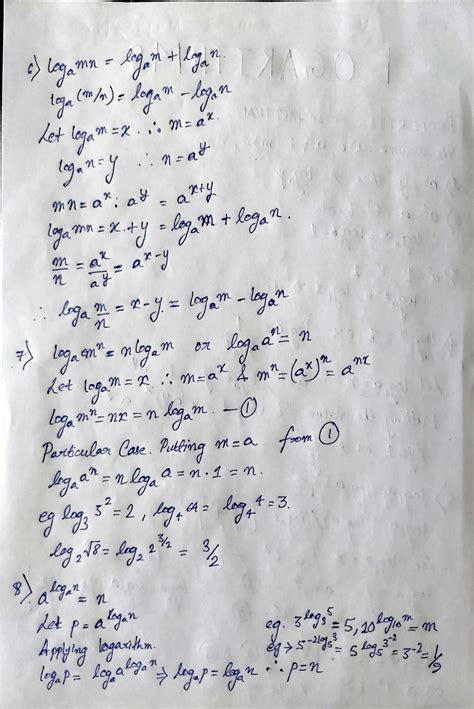 6) logₐmn = logₐm + logₐn.
logₐ(m/n) = logₐm − logₐn
Let logₐm = x ∴ m = aˣ.
logₐn = y ∴ n = aʸ
mn = aˣ . aʸ = aˣ⁺ʸ
logₐmn = x + y = logₐm + logₐn.
m/n = aˣ/aʸ = aˣ⁻ʸ
∴ logₐ m/n = x − y = logₐm − logₐn
7) logₐmⁿ = n logₐm or logₐaⁿ = n
Let logₐm = x ∴ m = aˣ & mⁿ = (aˣ)ⁿ = aⁿˣ
logₐmⁿ = nx = n logₐm. — ①
Particular Case. Putting m = a from ①
logₐaⁿ = n logₐa = n·1 = n.
eg log₃3² = 2, log₄64 = log₄4 = 3.
log₂√8 = log₂2^(3/2) = 3/2
8) a^(logₐn) = n
Let p = a^(logₐn) eg. 3^(log₃5) = 5, 10^(log₁₀m) = m
Applying logarithm. eg → 5^(−2log₅3) = 5^(log₅3⁻²) = 3⁻² = 1/9
logₐp = logₐa^(logₐn) ⇒ logₐp = logₐn ∴ p = n